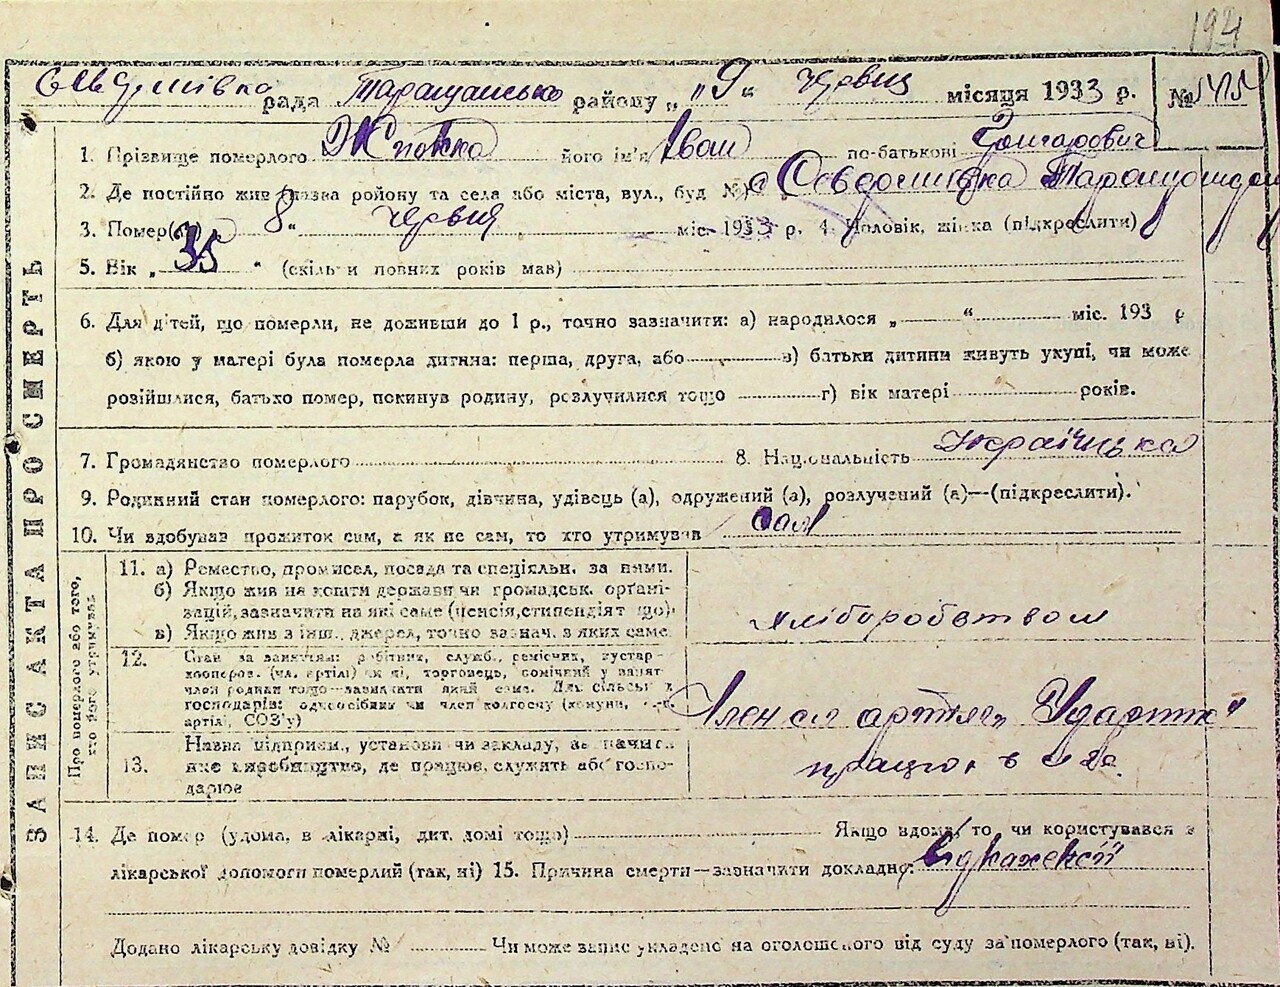 194
рада Таращанська району „ 9 " червня місяця 1933 р. №
1. Прізвище померлого його ім'я Іван по-батькові
2. Де постійно жив (назва ройону та села або міста, вул., буд №) с
3. Помер(ла) „ 8 " червня міс. 1933 р. 4. Чоловік, жінка (підкреслити)
5. Вік „ 35 " (скільки повних років мав)
6. Для дітей, що померли, не доживши до 1 р., точно зазначити: а) народилося „ " міс. 193 р
б) якою у матері була померла дитина: перша, друга, або в) батьки дитини живуть укупі, чи може
розійшлися, батько помер, покинув родину, розлучилися тощо г) вік матері років.
7. Громадянство померлого 8. Національність Українська
9. Родинний стан померлого: парубок, дівчина, удівець (а), одружений (а), розлучений (а)—(підкреслити).
10. Чи здобував прожиток сам, а як не сам, то хто утримував сам
ЗАПИС АКТА ПРО СМЕРТЬ
Про померлого або того,
хто його утримував
11. а) Ремество, промисел, посада та спеціяльн. за ними.
б) Якщо жив на кошти держави чи громадськ. орґані-
зацій, зазначити на які саме (пенсія, стипендіят що):
в) Якщо жив з інш. джерел, точно зазнач. з яких саме.
хліборобством
12. Стан за заняттям: робітник, служб., ремісник, кустар-
кооперов. (чл. артілі) чи ні, торговець, помічний у занят.
член родини тощо—зазначати який саме. Для сільськ.
господарів: одноосібник чи член колгоспу (комуни, с.-г.
артілі, СОЗ'у)
Член с.г. артіль „
13. Назва підприєм., установи чи закладу, а зазначити
яке виробництво, де працює, служить або госпо-
дарює
працю. в с.г.
14. Де помер (удома, в лікарні, дит. домі тощо) Якщо вдома, то чи користувався з
лікарської допомоги померлий (так, ні) 15. Причина смерти—зазначити докладно. Від кахексії
Додано лікарську довідку № Чи може запис укладено на оголошеного від суду за померлого (так, ні).